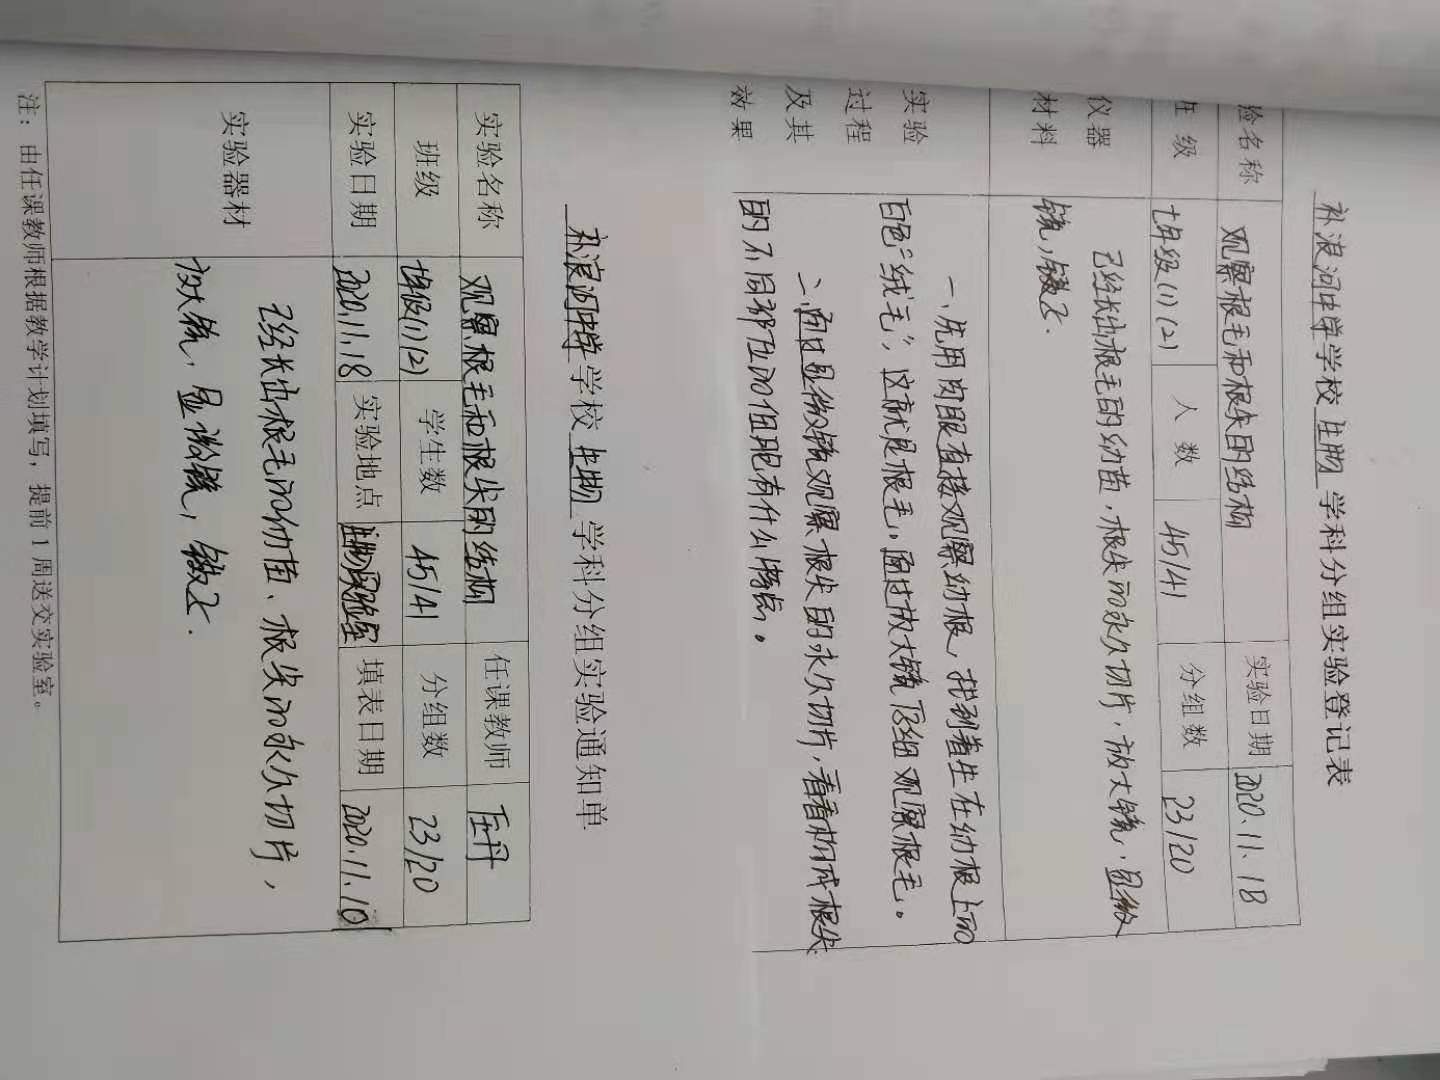 补浪河中学学校生物学科分组实验登记表
验名称 观察根毛和根尖的结构 实验日期 2020.11.18
班级 七年级(1)(2) 人数 45/41 分组数 23/20
仪器材料 已经长出根毛的幼苗,根尖的永久切片,放大镜,显微
镜,镊子.
实验过程及其效果
一、先用肉眼直接观察幼根,找到着生在幼根上的
白色“绒毛”,这就是根毛,通过放大镜仔细观察根毛。
二、通过显微镜观察根尖的永久切片,看看构成根尖
的不同部位的细胞有什么特点。
补浪河中学学校生物学科分组实验通知单
实验名称 观察根毛和根尖的结构 任课教师 丹
班级 七年级(1)(2) 学生数 45/41 分组数 23/20
实验日期 2020.11.18 实验地点 生物实验室 填表日期 2020.11.10
实验器材 已经长出根毛的幼苗、根尖的永久切片,
放大镜,显微镜,镊子.
注:由任课教师根据教学计划填写,提前1周送交实验室。